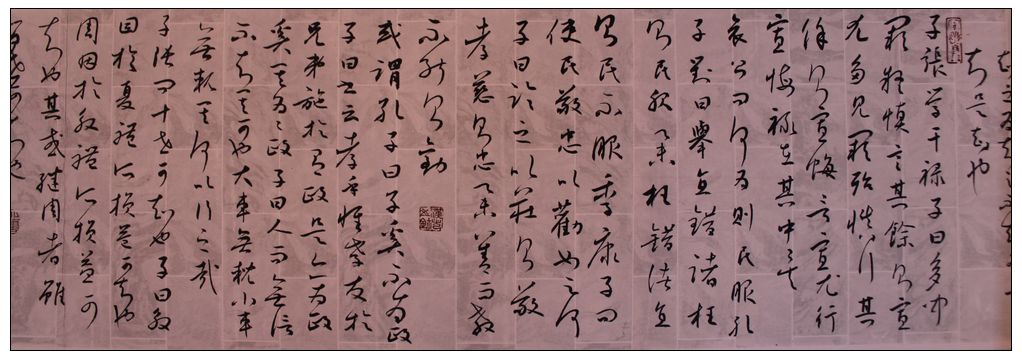 知是知也
子張學干祿子曰多聞
闕疑慎言其餘則寡
尤多見闕殆慎行其
餘則寡悔言寡尤行
寡悔祿在其中矣
哀公問何為則民服孔
子對曰舉直錯諸枉
則民服舉枉錯諸直
則民不服季康子問
使民敬忠以勸如之何
子曰臨之以莊則敬
孝慈則忠舉善而教
不能則勸
或謂孔子曰子奚不為政
子曰書云孝乎惟孝友於
兄弟施於有政是亦為政
奚其為為政子曰人而無信
不知其可也大車無輗小車
無軏其何以行之哉
子張問十世可知也子曰殷
因於夏禮所損益可知也
周因於殷禮所損益可
知也其或繼周者雖